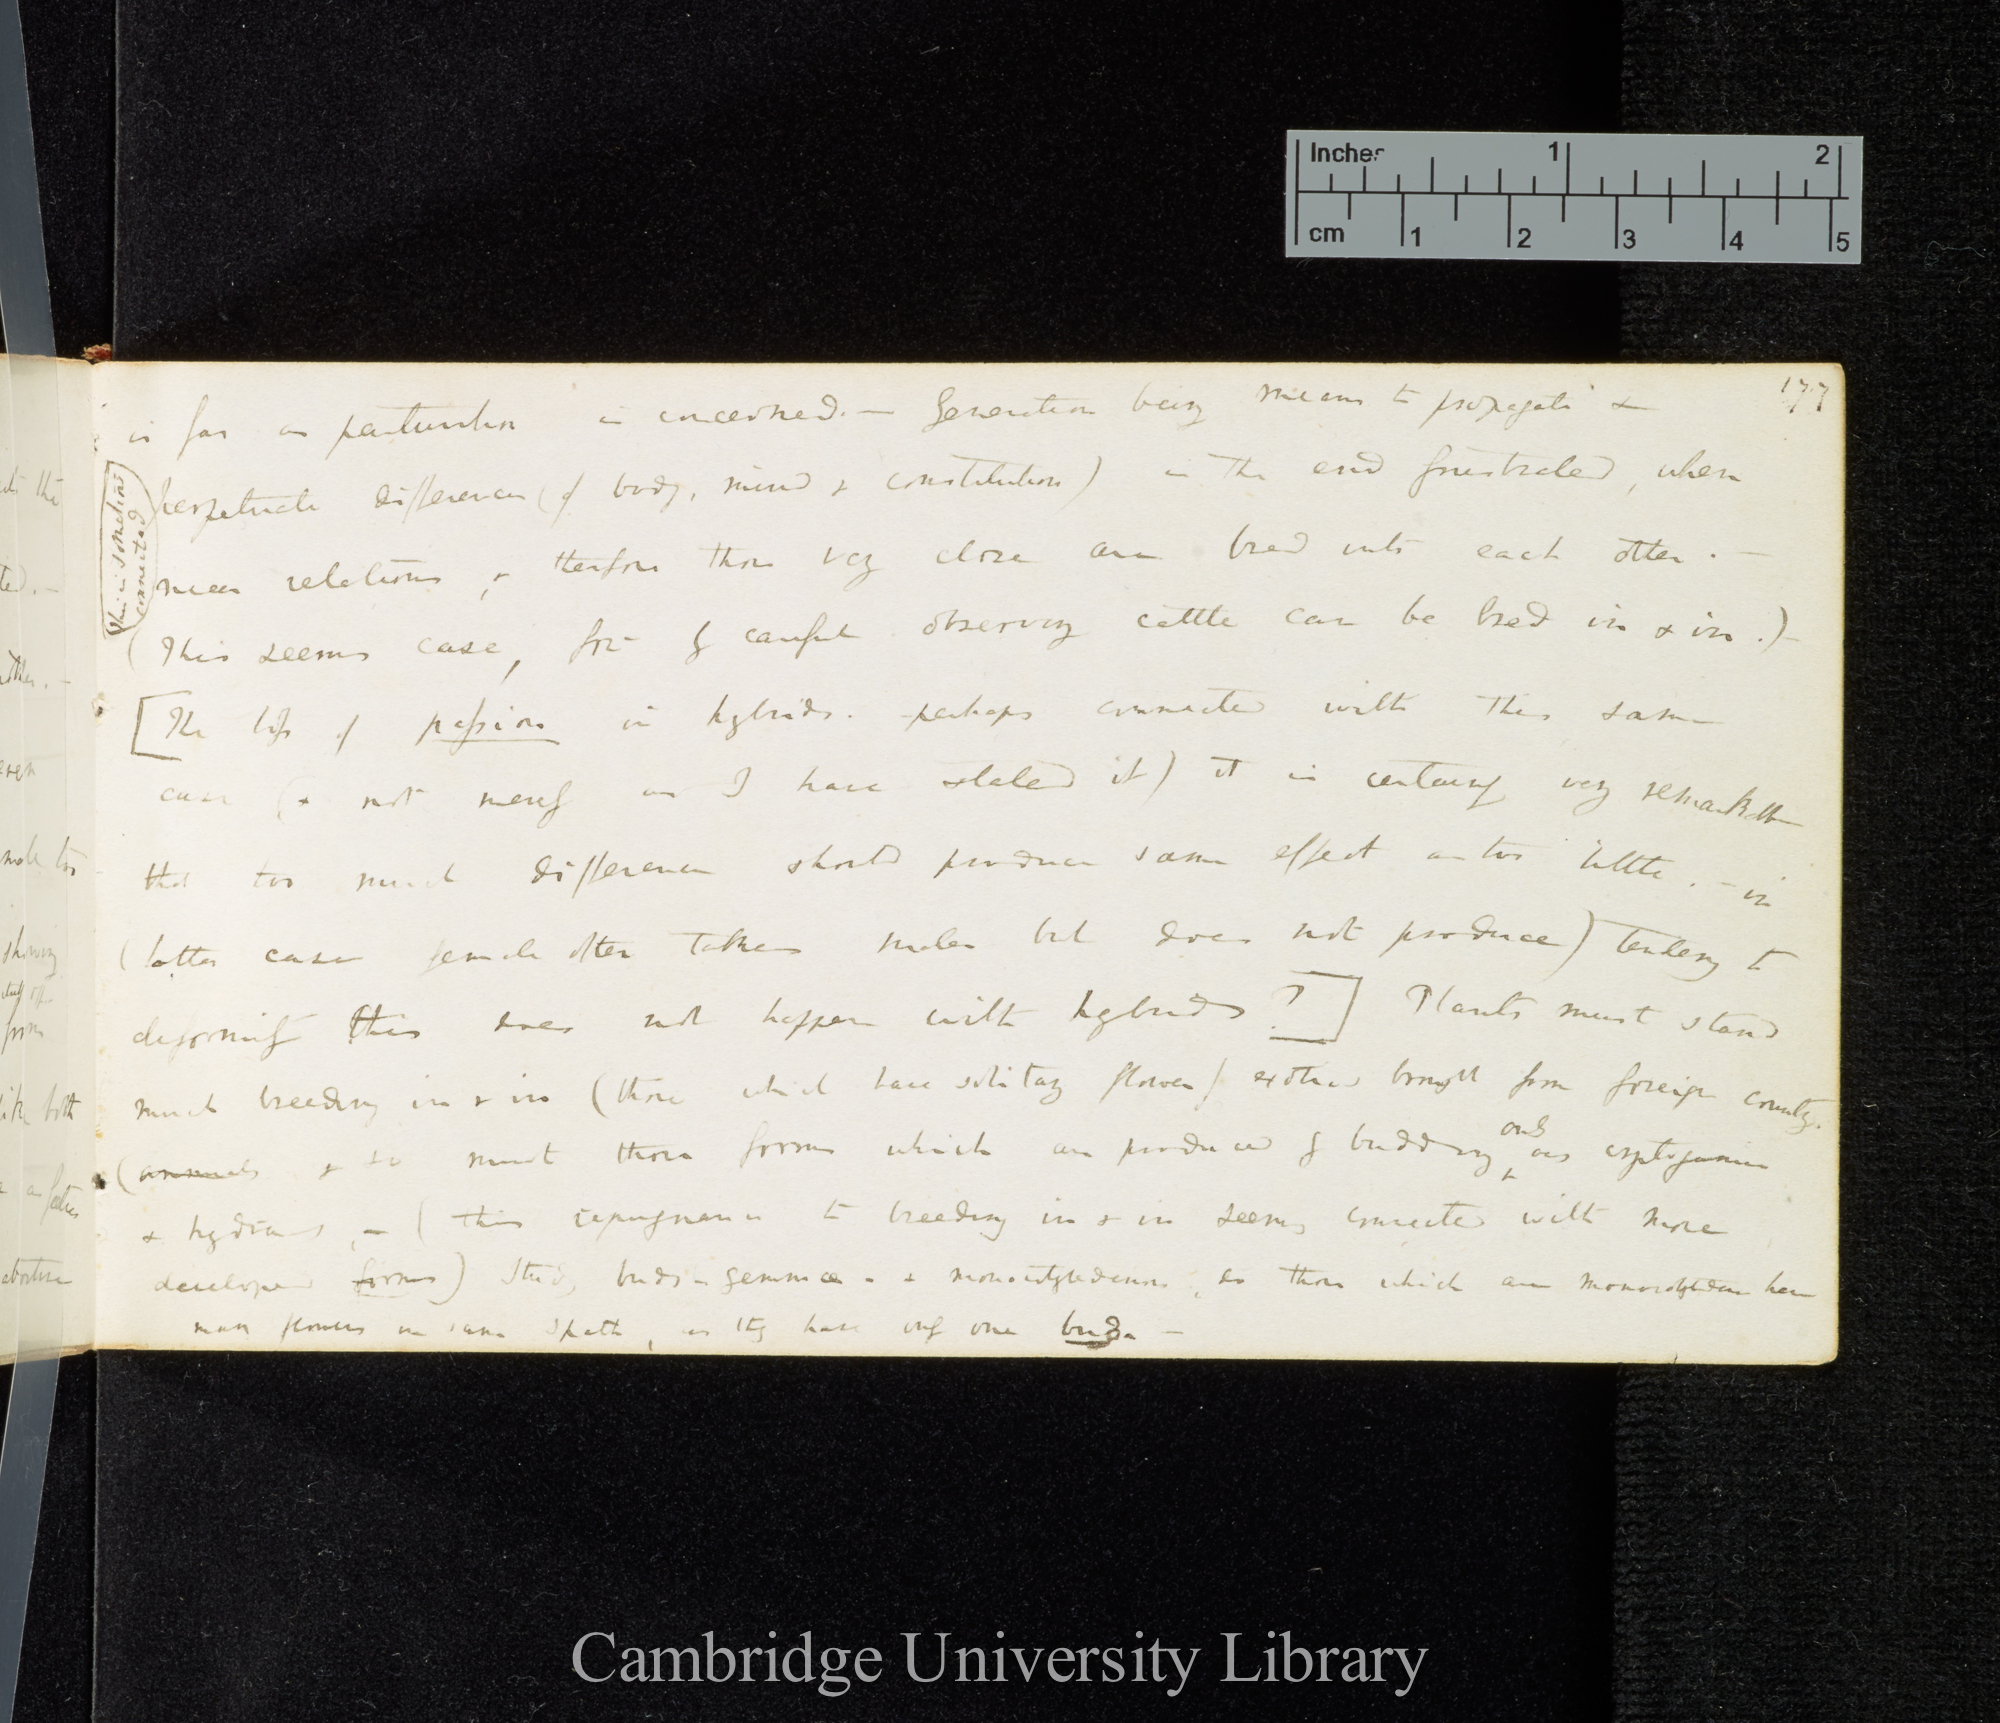 177
is far as parturition is concerned.— Generation being means to propagate &
perpetuate differences (of body, mind & constitution) is in the end frustrated, when
near relations, & therefore those very close are bred into each other. —
(This seems case, for by careful observing cattle can be bred in & in.)—
This is sometimes connected
[The loss of passion in hybrids. perhaps connected with this same
case (& not merely as I have stated it) it is certainly very remarkable
that too much difference should produce same effect as too little. — in
(latter case female often takes males but does not produce) tendency to
deformity this does not happen with hybrids ?] Plants must stand
much breeding in & in (those which have solitary flower/ exotics brought from foreign country.
(annuals & so must those forms which are produced by budding only, as cryptogamia
& hydras, — (this repugnance to breeding in & in seems connected with more
developed forms) Study buds - gemmae - & monocotyledenous, do those which are monocotyledenous have
many flowers in same spath, as they have only one bud —
Inches 1 2
cm 1 2 3 4 5
Cambridge University Library